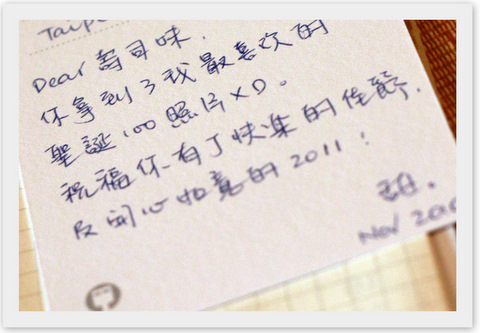 Taipe
Dear 壽司味.
你拿到了我最喜欢的
聖誕100照片XD。
祝福你有了快樂的佳節.
及開心如意的2011!
Nov 2010